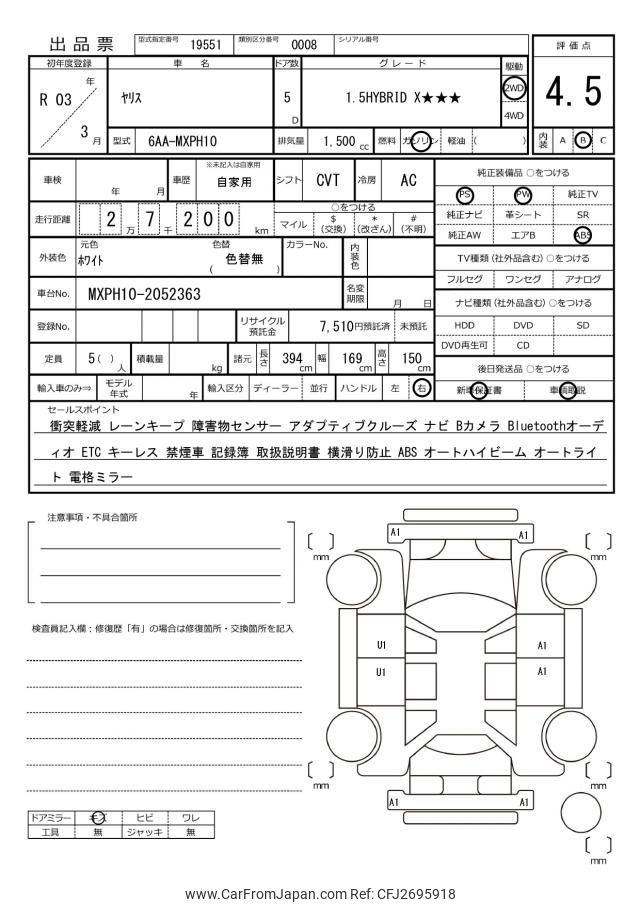 出品票 型式指定番号 19551 類別区分番号 0008 シリアル番号
評価点
4.5
内装 A B C
初年度登録 車 名 ドア数 グレード 駆動
R 03 年 3 月
ヤリス 5 D 1.5HYBRID X★★★ 2WD
4WD
型式 6AA-MXPH10 排気量 1,500 cc 燃料 ガソリン 軽油 ( )
車検 年 月 車歴 ※未記入は自家用 自家用 シフト CVT 冷房 AC
走行距離 2 万 7 千 2 0 0 km
○をつける
マイル $(交換) *(改ざん) #(不明)
外装色 元色 ホワイト 色替 ( 色替無 ) カラーNo. 内装色
車台No. MXPH10-2052363 名変期限 月 日
登録No. リサイクル預託金 7,510円預託済 未預託
定員 5( ) 人 積載量 kg 諸元 長さ 394 cm 幅 169 cm 高さ 150 cm
輸入車のみ⇒ モデル年式 年 輸入区分 ディーラー 並行 ハンドル 左 右
純正装備品 ○をつける
PS PW 純正TV
純正ナビ 革シート SR
純正AW エアB ABS
TV種類(社外品含む)○をつける
フルセグ ワンセグ アナログ
ナビ種類(社外品含む)○をつける
HDD DVD SD
DVD再生可 CD
後日発送品 ○をつける
新車保証書 車輌取説
セールスポイント
衝突軽減 レーンキープ 障害物センサー アダプティブクルーズ ナビ Bカメラ Bluetoothオーデ
ィオ ETC キーレス 禁煙車 記録簿 取扱説明書 横滑り防止 ABS オートハイビーム オートライ
ト 電格ミラー
注意事項・不具合箇所
検査員記入欄:修復歴「有」の場合は修復箇所・交換箇所を記入
A1 A1
mm mm
U1 A1
U1 A1
mm mm
A1 A1
mm
ドアミラー キズ ヒビ ワレ
工具 無 ジャッキ 無
www.CarFromJapan.com Ref: CFJ2695918